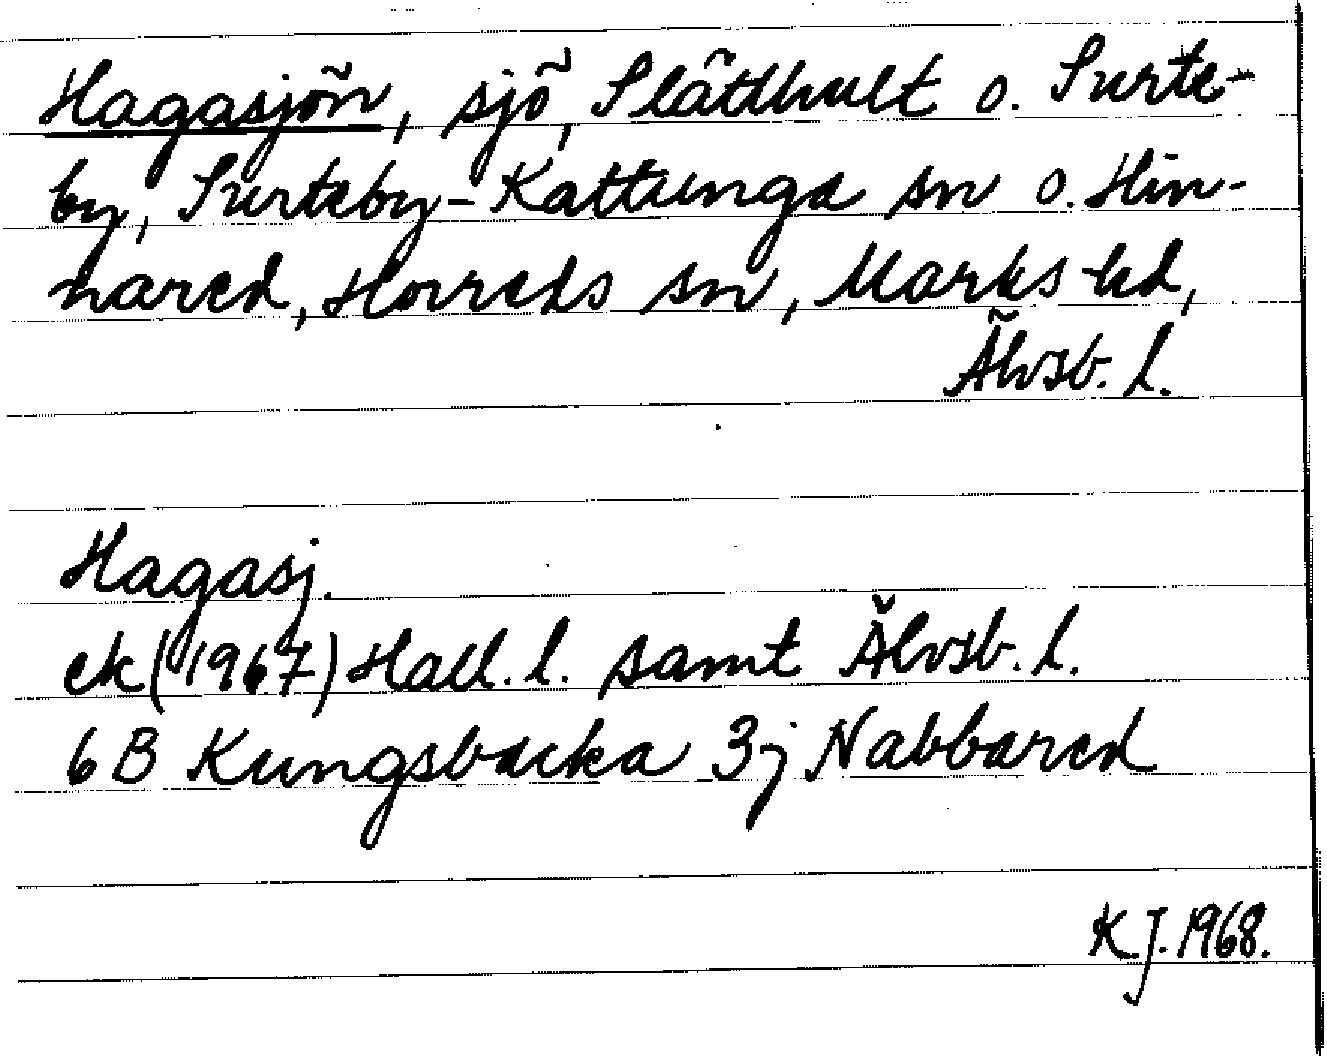 Hagasjön, sjö, Slätthult o. Surte-
by, Surteby-Kattunga sn o. Hin-
nared, Horreds sn, Marks hd,
Älvsb. l.
Hagasj.
ek (1967) Hall. l. samt Älvsb. l.
6B Kungsbacka 3j Nabbared
K.J. 1968.